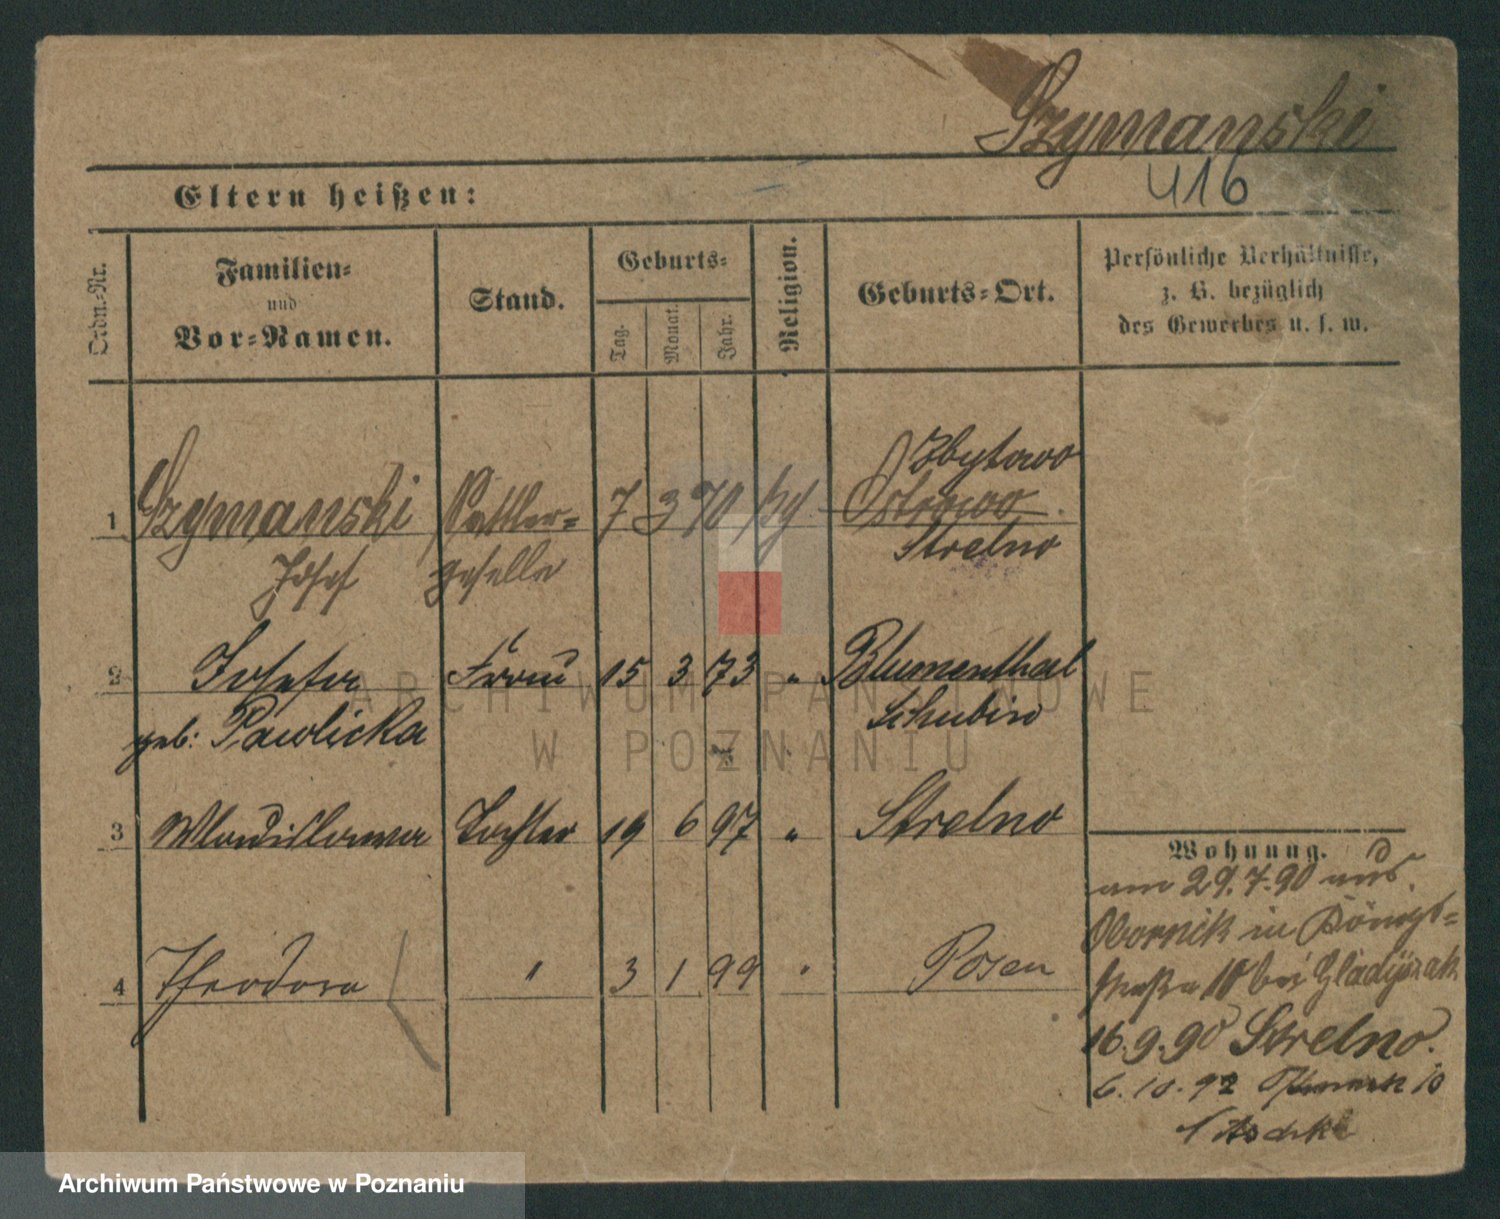 Szymanski
416
Eltern heißen:
Ordn.-Nr.
Familien-
und
Vor-Namen.
Stand.
Geburts-
Tag.
Monat.
Jahr.
Religion.
Geburts-Ort.
Persönliche Verhältnisse,
z. B. bezüglich
des Gewerbes u. s. w.
Zbytowo
1 Szymanski Sattler- 7 3 70 Ostrowo
Josef geselle Strelno
2 Josefa Frau 15 3 73 " Blumenthal
geb: Pawlicka Schubin
3 Wladislawa Tochter 19 6 97 " Strelno
4 Theodora " 3 1 99 " Posen
Wohnung.
am 29.7.90 aus
Obornik in Königs-
straße 10 bei Gladyszak
16.9.90 Strelno.
6.10.92
ARCHIWUM PAŃSTWOWE
W POZNANIU
Archiwum Państwowe w Poznaniu